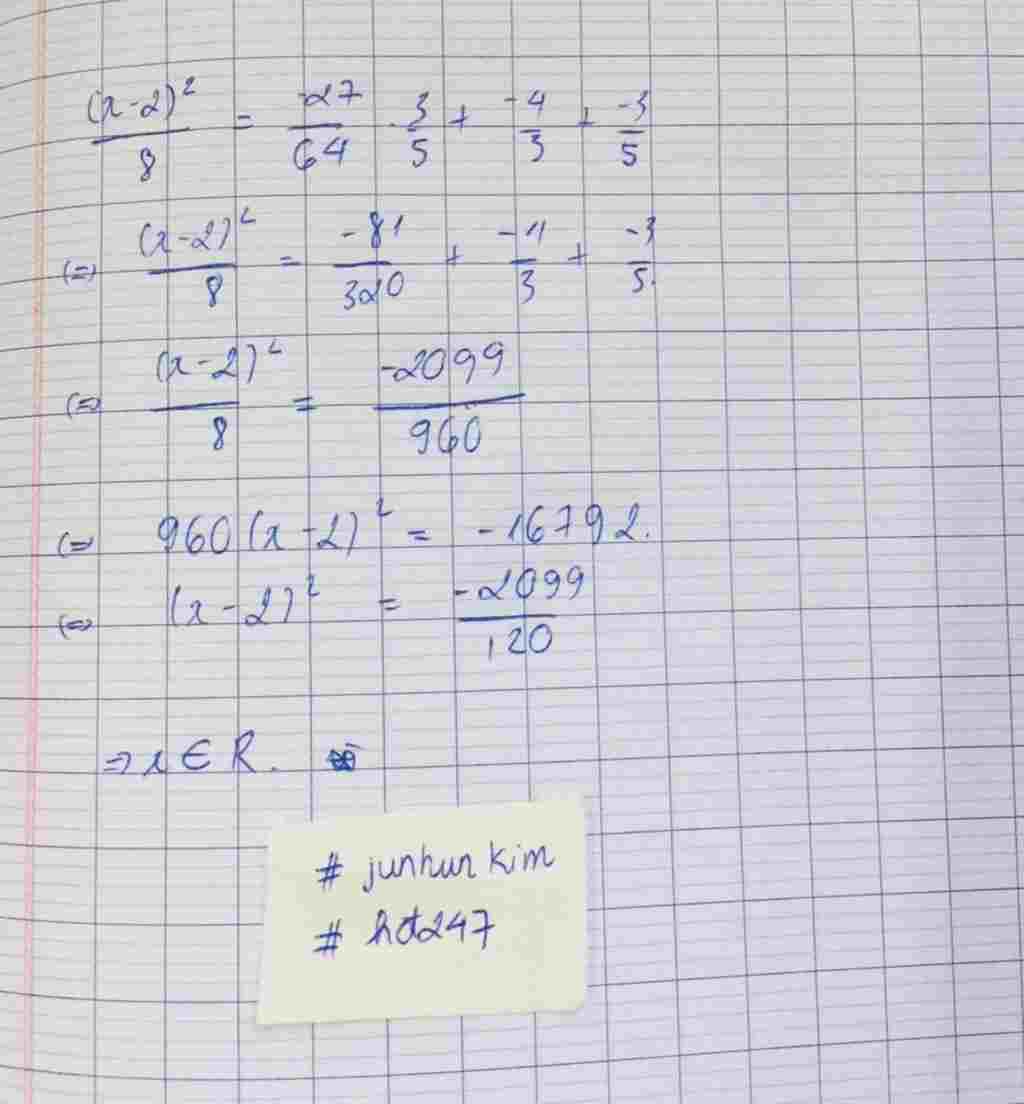 (x-2)²/8 = -27/64 . 3/5 + -4/3 + -3/5
(=) (x-2)²/8 = -81/320 + -4/3 + -3/5.
(=) (x-2)²/8 = -2099/960
(=) 960(x-2)² = -16792.
(=) (x-2)² = -2099/120
=> x ∈ R.
# junhun kim
# hd247